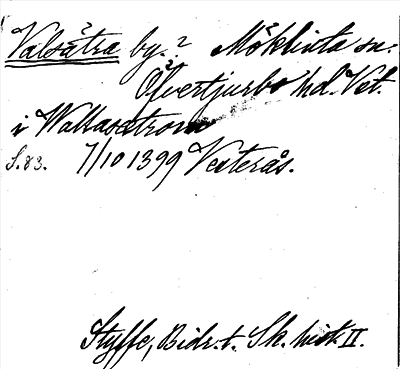 Valsätra by.? Möklinta sn.
Öfvertjurbo hd. Vet.
i Wallasætrom
S. 83. 7/10 1399 Vesterås.
Styffe, Bidr. t. Sk. hist. II.